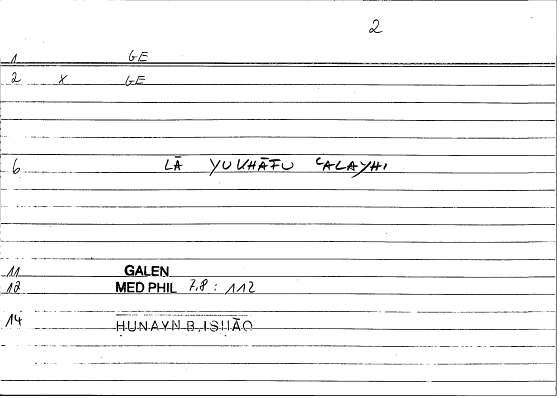 2
1 GE
2 X GE
6 LĀ YUKHĀFU ʿALAYHI
11 GALEN
12 MED PHIL 7,8 : 112
14 ḤUNAYN B. ISḤĀQ